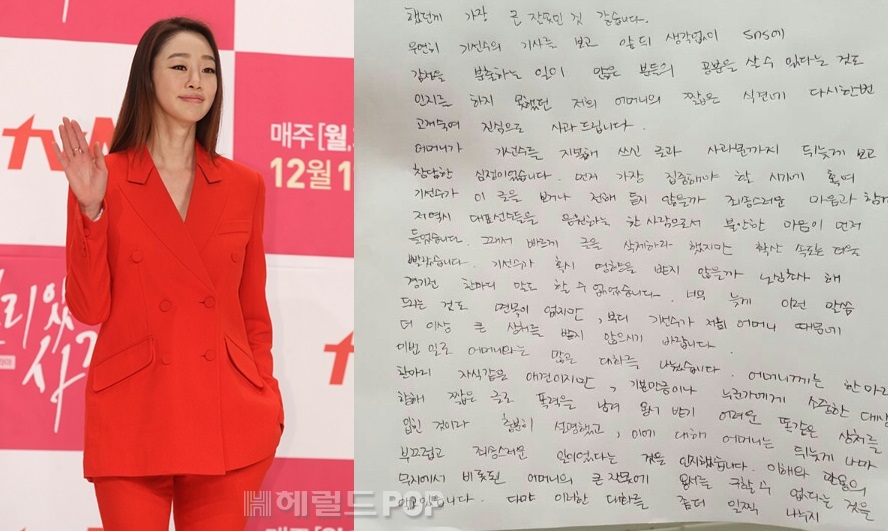 tvN
매주 [월,
12월 1
리 있
사
H 헤럴드POP
했던게 가장 큰 잘못인 것 같습니다.
우연히 기선수의 기사를 보고 앞뒤 생각없이 SNS에
감정을 분출하는 일이 많은 분들의 공분을 살 수 있다는 것도
인지를 하지 못했던 저희 어머니의 짧은 식견에 다시한번
고개숙여 진심으로 사과 드립니다.
어머니가 기선수를 지목해 쓰신 글과 사과문까지 뒤늦게 보고
참담한 심정이었습니다. 먼저 가장 집중해야 할 시기에 혹여
기선수가 이 글을 보거나 전해 듣지 않을까 죄송스러운 마음과 함께
저 역시 대표선수들을 응원하는 한 사람으로서 불안한 마음이 먼저
들었습니다. 그래서 바르게 글을 삭제하라 했지만 확산 속도는 더욱
빨랐습니다. 기선수가 혹시 영향을 받지 않을까 노심초사 해
경기전 한마디 말도 할 수 없었습니다. 너무 늦게 이런 말씀
드리는 것도 면목이 없지만, 부디 기선수가 저희 어머니 때문에
더 이상 큰 상처를 받지 않으시기 바랍니다.
이번 일로 어머니와는 많은 대화를 나눴습니다. 어머니께는 한마리
한마리 자식같은 애견이지만, 기본만큼이나 누군가에게 소중한 대상
향해 짧은 글로 폭력을 남겨 용서 받기 어려운 똑같은 상처를
입힌 것이라 충분히 설명했고, 이에 대해 어머니는 뒤늦게 나마
부끄럽고 죄송스러운 일이었다는 것을 인지했습니다. 이해와 관용의
무지에서 비롯된 어머니의 큰 잘못에 용서를 구할 수 없다는 것을
니다. 다만 이러한 대화를 좀더 일찍 나누지